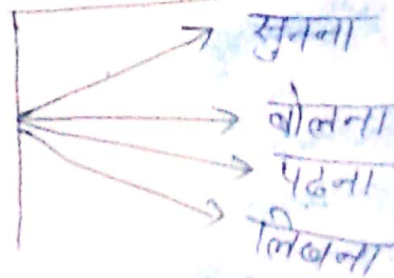 सुनना
बोलना
पढना
लिखना